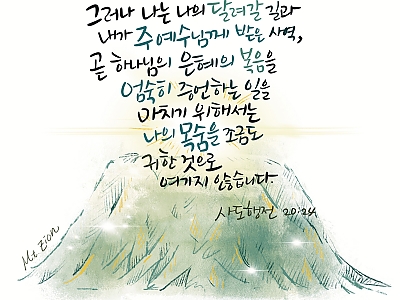 그러나 나는 나의 달려갈 길과
내가 주 예수님께 받은 사역,
곧 하나님의 은혜의 복음을
엄숙히 증언하는 일을
마치기 위해서는
나의 목숨을 조금도
귀한 것으로
여기지 않습니다
사도행전 20:24
Mt. Zion